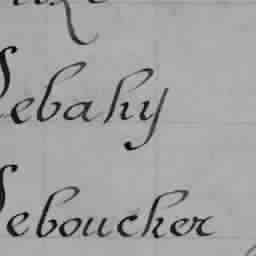 Lebahy
Leboucher